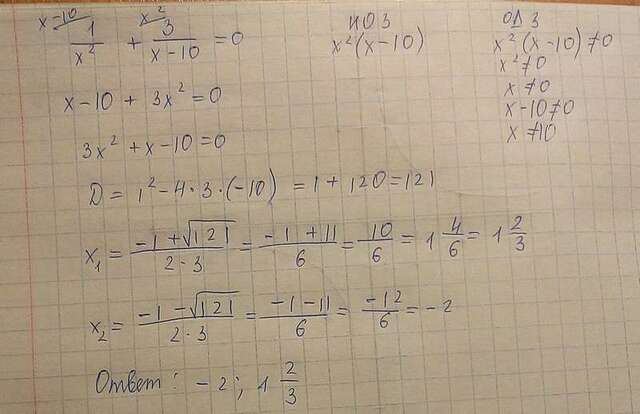 x-10 x²
1/x² + 3/(x-10) = 0
НОЗ
x²(x-10)
ОДЗ
x²(x-10)≠0
x²≠0
x≠0
x-10≠0
x≠10
x-10 + 3x² = 0
3x² + x - 10 = 0
D = 1² - 4·3·(-10) = 1 + 120 = 121
x₁ = (-1 + √121)/(2·3) = (-1 + 11)/6 = 10/6 = 1 4/6 = 1 2/3
x₂ = (-1 - √121)/(2·3) = (-1 - 11)/6 = -12/6 = -2
Ответ: -2; 1 2/3